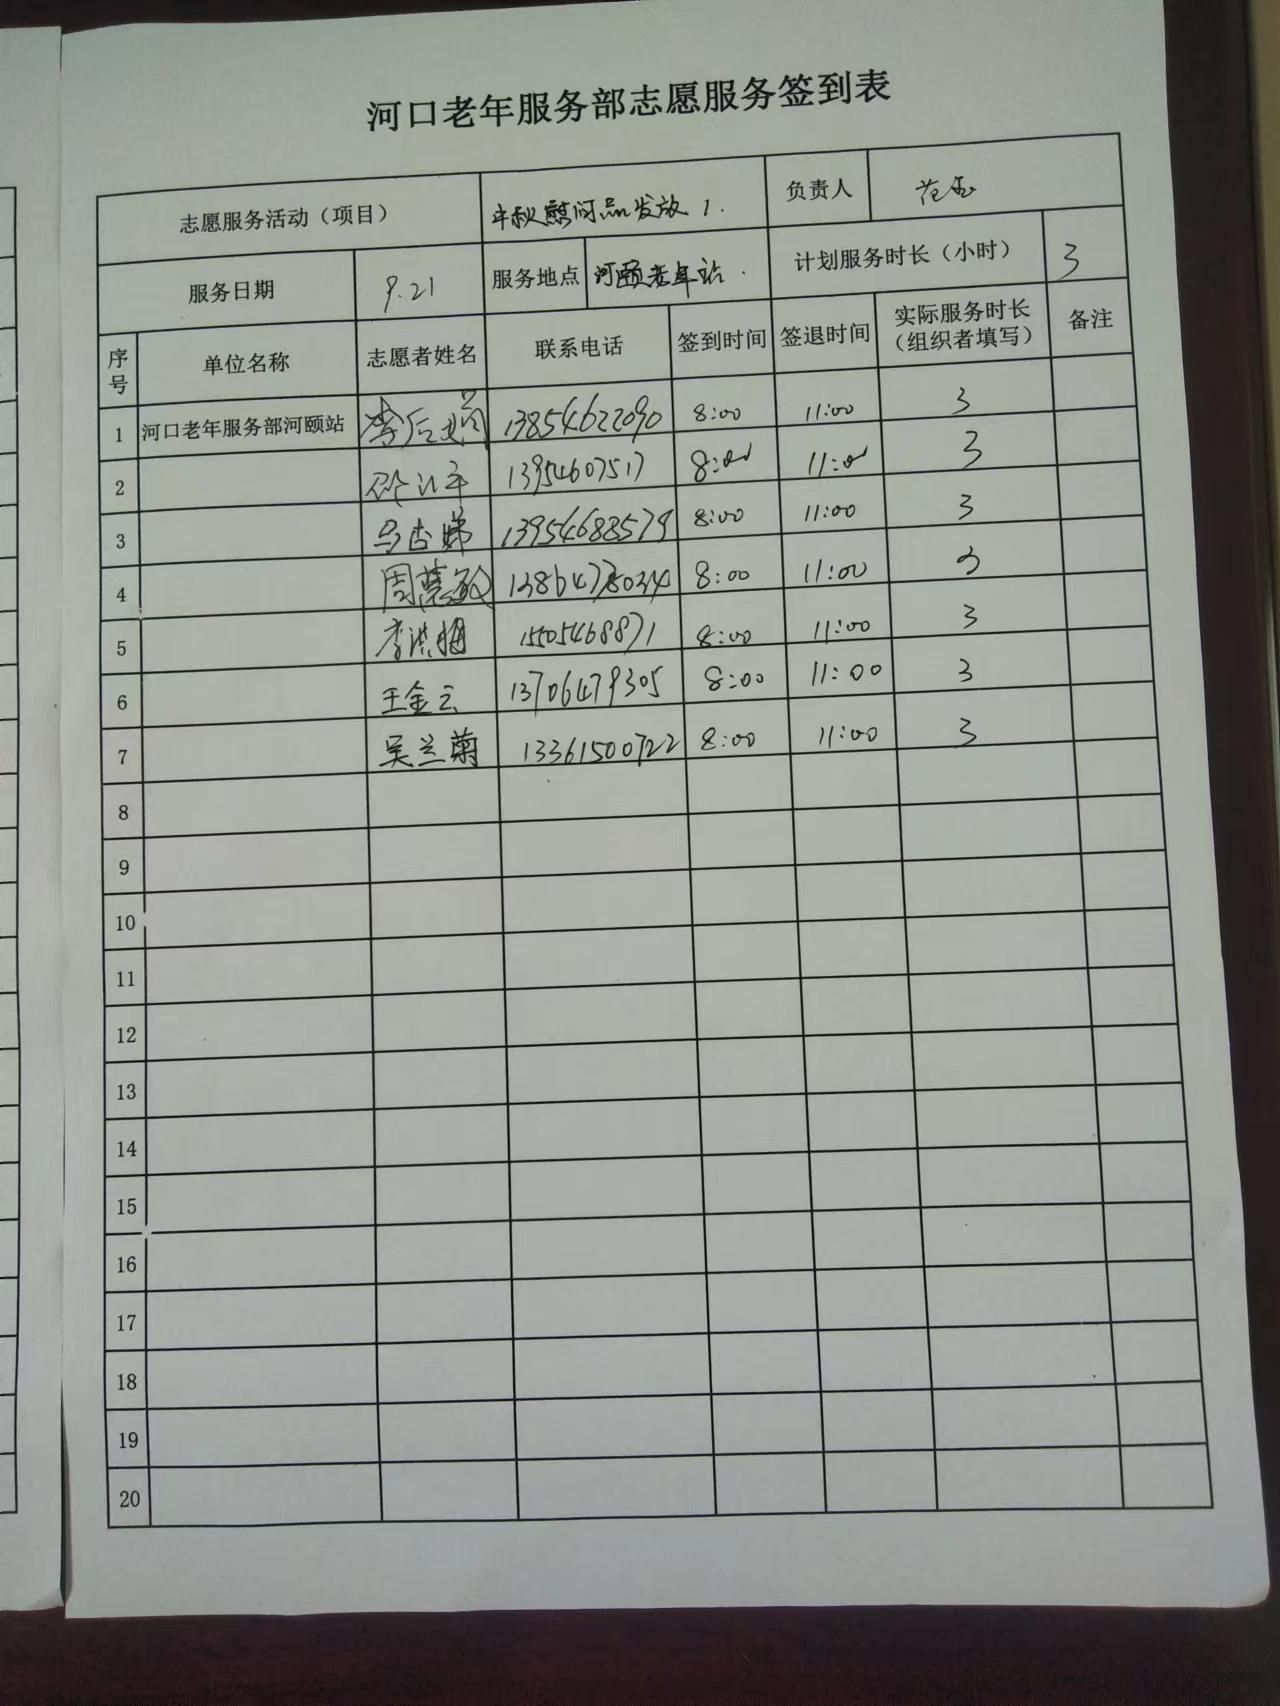 河口老年服务部志愿服务签到表
志愿服务活动（项目） 中秋慰问品发放 1. 负责人 范
服务日期 9.21 服务地点 河颐老年站. 计划服务时长（小时） 3
序号 单位名称 志愿者姓名 联系电话 签到时间 签退时间 实际服务时长（组织者填写） 备注
1 河口老年服务部河颐站 李 13854622090 8:00 11:00 3
2 13954607517 8:00 11:00 3
3 马杏娣 13954688579 8:00 11:00 3
4 周慧敏 8:00 11:00 3
5 李洪梅 15505468871 8:00 11:00 3
6 王金云 13706479305 8:00 11:00 3
7 吴兰菊 13361500722 8:00 11:00 3
8
9
10
11
12
13
14
15
16
17
18
19
20